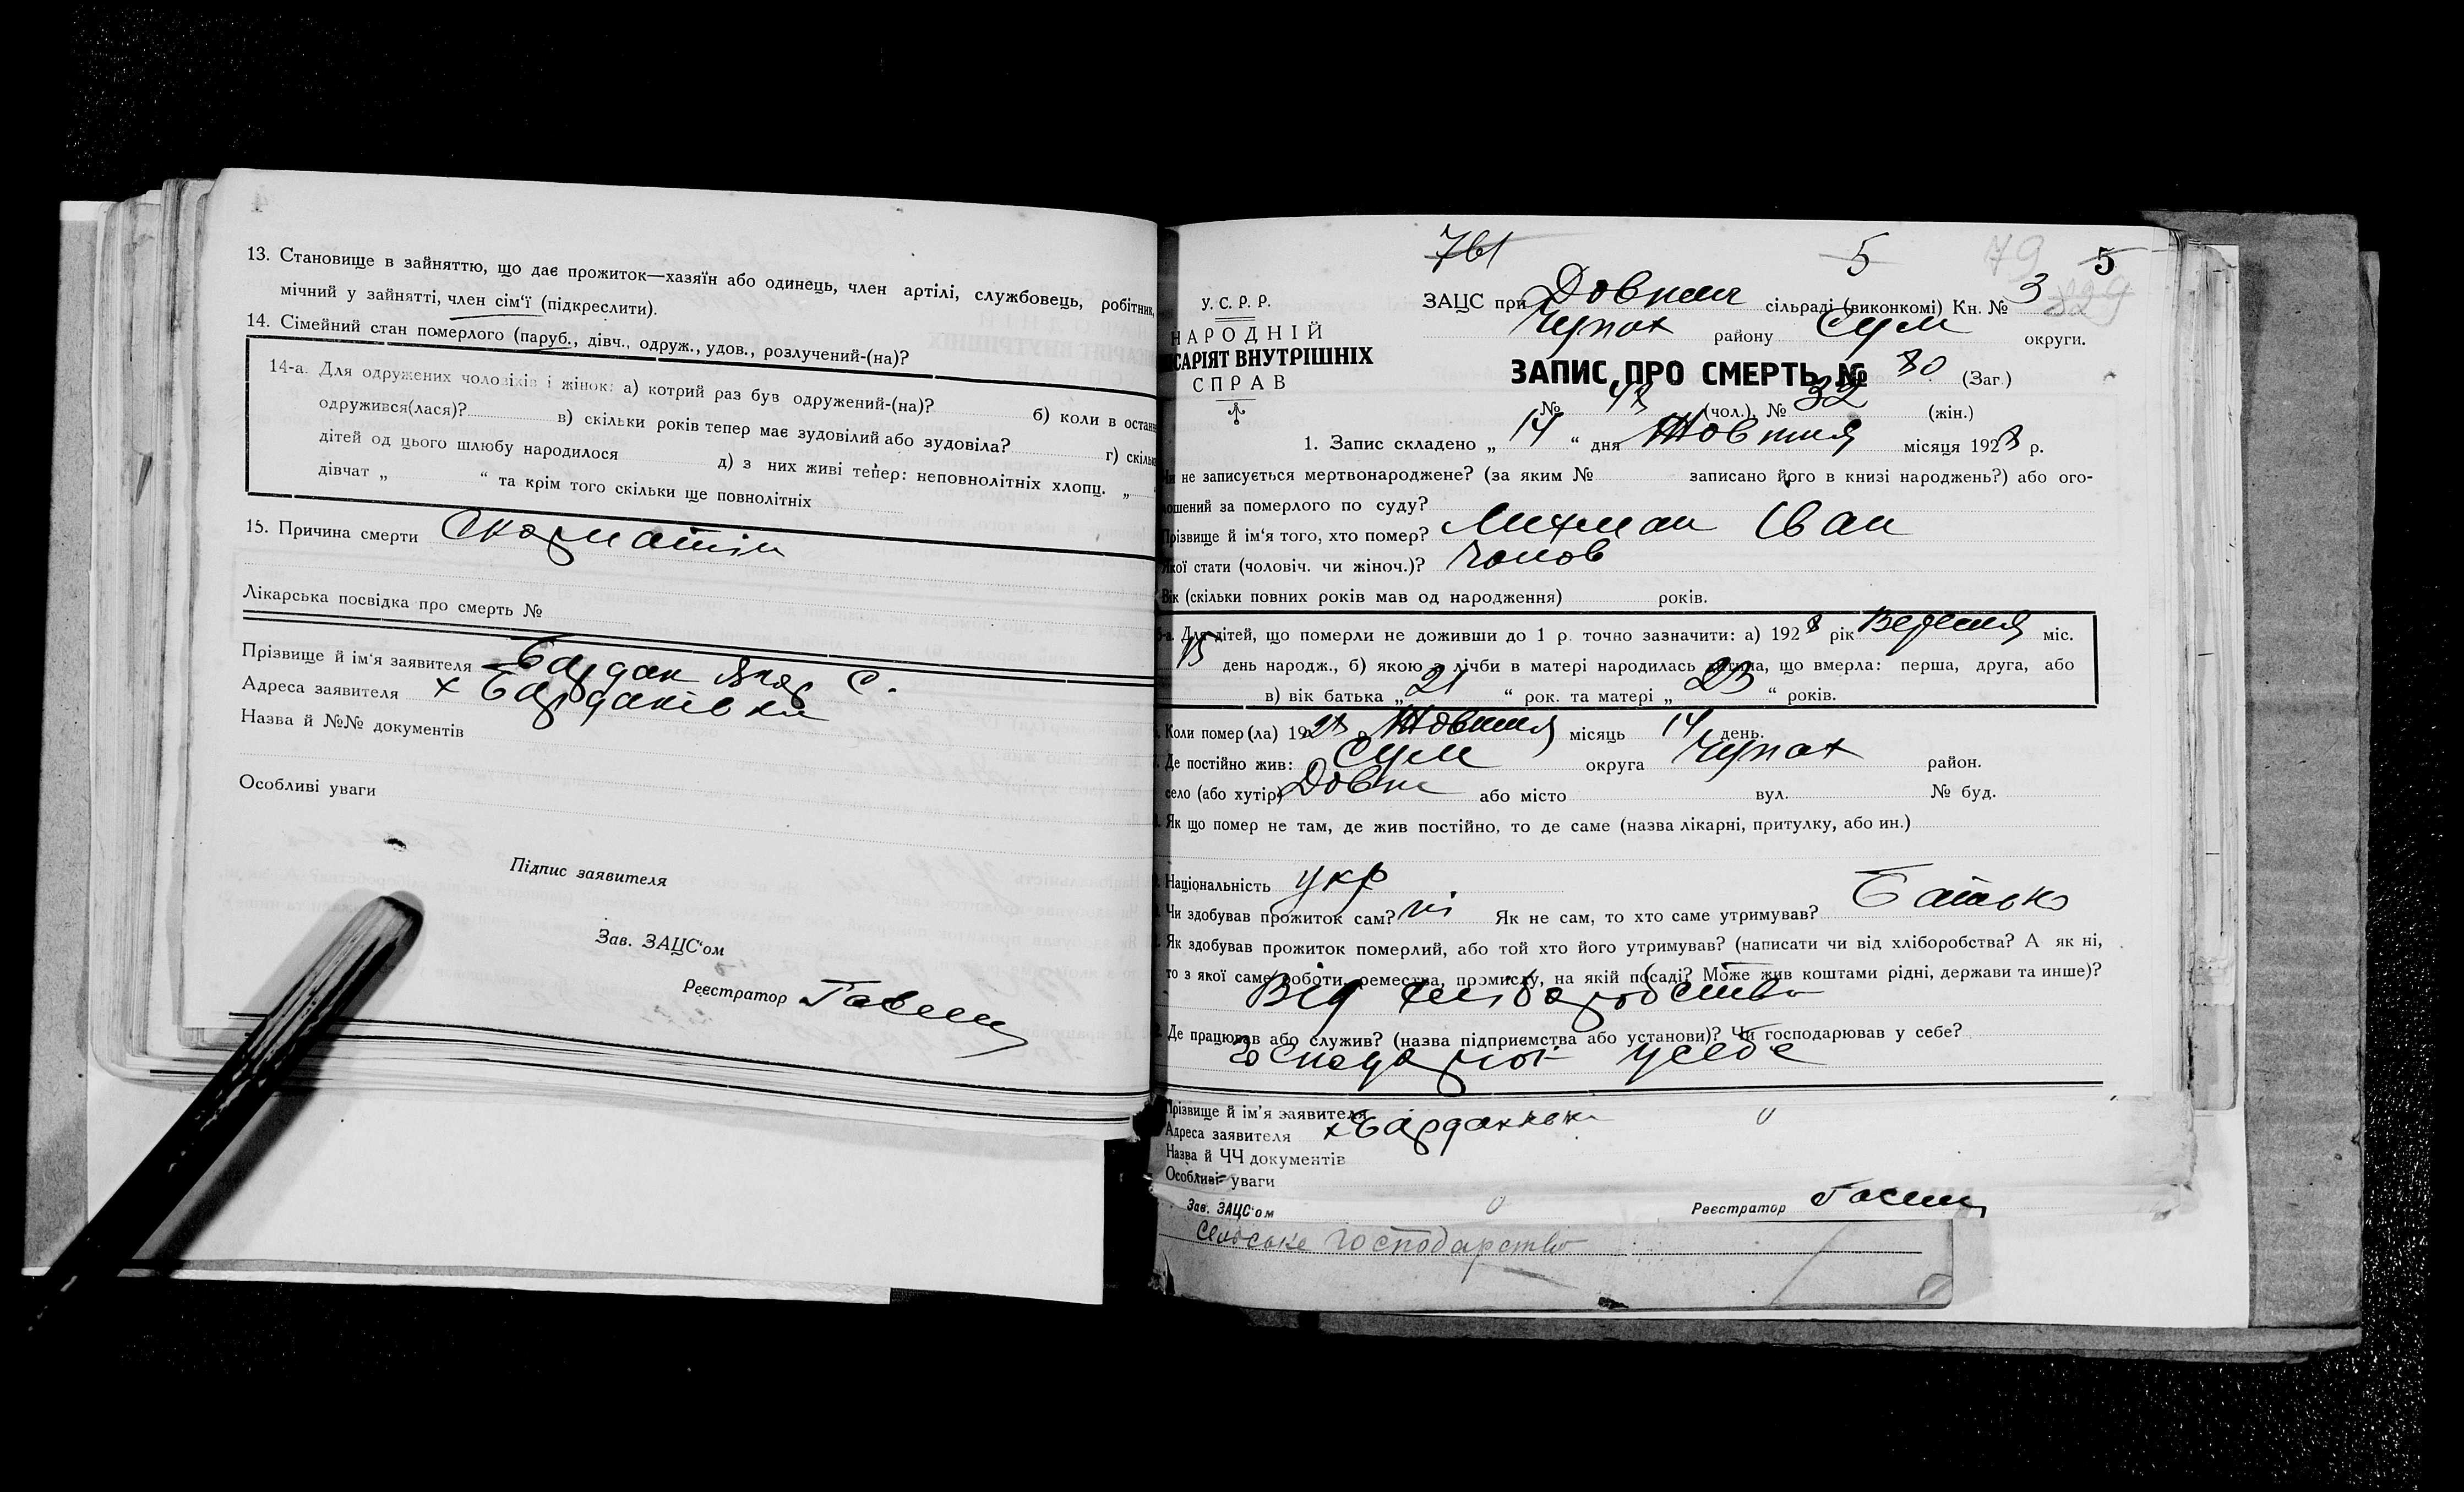 13. Становище в зайняттю, що дає прожиток—хазяїн або одинець, член артілі, службовець, робітник,
мічний у зайнятті, член сім'ї (підкреслити).
14. Сімейний стан померлого (паруб., дівч., одруж., удов., розлучений-(на)?
14-а. Для одружених чоловіків і жінок: а) котрий раз був одружений-(на)? б) коли в останн
одружився(лася)? в) скільки років тепер має зудовілий або зудовіла? г) скільк
дітей од цього шлюбу народилося д) з них живі тепер: неповнолітніх хлопц. „
дівчат „ “ та крім того скільки ще повнолітніх
15. Причина смерти
Лікарська посвідка про смерть №
Прізвище й ім'я заявителя Бардак С.
Адреса заявителя х Бардаківка
Назва й №№ документів
Особливі уваги
Підпис заявителя
Зав. ЗАЦС'ом
Реєстратор
761 5 79 5
У. С. Р. Р.
НАРОДНІЙ
ІСАРІЯТ ВНУТРІШНІХ
СПРАВ
ЗАЦС при сільраді (виконкомі) Кн. № 3
Чупах району Сум округи.
ЗАПИС ПРО СМЕРТЬ № 80 (Заг.)
№ 48 (чол.), № 32 (жін.)
1. Запис складено „ 14 “ дня Жовтня місяця 1928 р.
Чи не записується мертвонароджене? (за яким № записано його в книзі народжень?) або ого-
лошений за померлого по суду?
Прізвище й ім'я того, хто помер? Іван
Якої стати (чоловіч. чи жіноч.)? Чолов
Вік (скільки повних років мав од народження) років.
5-а. Для дітей, що померли не доживши до 1 р. точно зазначити: а) 1928 рік Вересня міс.
15 день народж., б) якою з лічби в матері народилась дитина, що вмерла: перша, друга, або
в) вік батька „ 21 “ рок. та матері „ 23 “ років.
Коли помер (ла) 1928 р. Жовтня місяць 14 день.
Де постійно жив: Сум округа Чупах район.
село (або хутір) Довж або місто вул. № буд.
Як що помер не там, де жив постійно, то де саме (назва лікарні, притулку, або ин.)
Національність укр
Чи здобував прожиток сам? ні Як не сам, то хто саме утримував? Батько
Як здобував прожиток померлий, або той хто його утримував? (написати чи від хліборобства? А як ні,
то з якої саме роботи, ремества, промислу, на якій посаді? Може жив коштами рідні, держави та инше)?
Від хліборобства
Де працював або служив? (назва підприємства або установи)? Чи господарював у себе?
у себе
Прізвище й ім'я заявителя
Адреса заявителя х Бардаківка
Назва й ЧЧ документів
Особливі уваги
Зав. ЗАЦС'ом Реєстратор
Сельське господарство